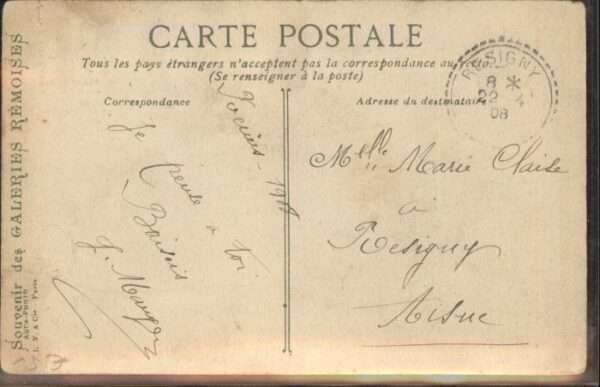 CARTE POSTALE
Tous les pays étrangers n'acceptent pas la correspondance au recto.
(Se renseigner à la poste)
Correspondance
Adresse du destinataire
RESIGNY
8 *
22
08
Je pense à toi
Baisers
Melle Marie Claise
à
Resigny
Aisne
Souvenir des GALERIES REMOISES
L. V. & Cie Paris